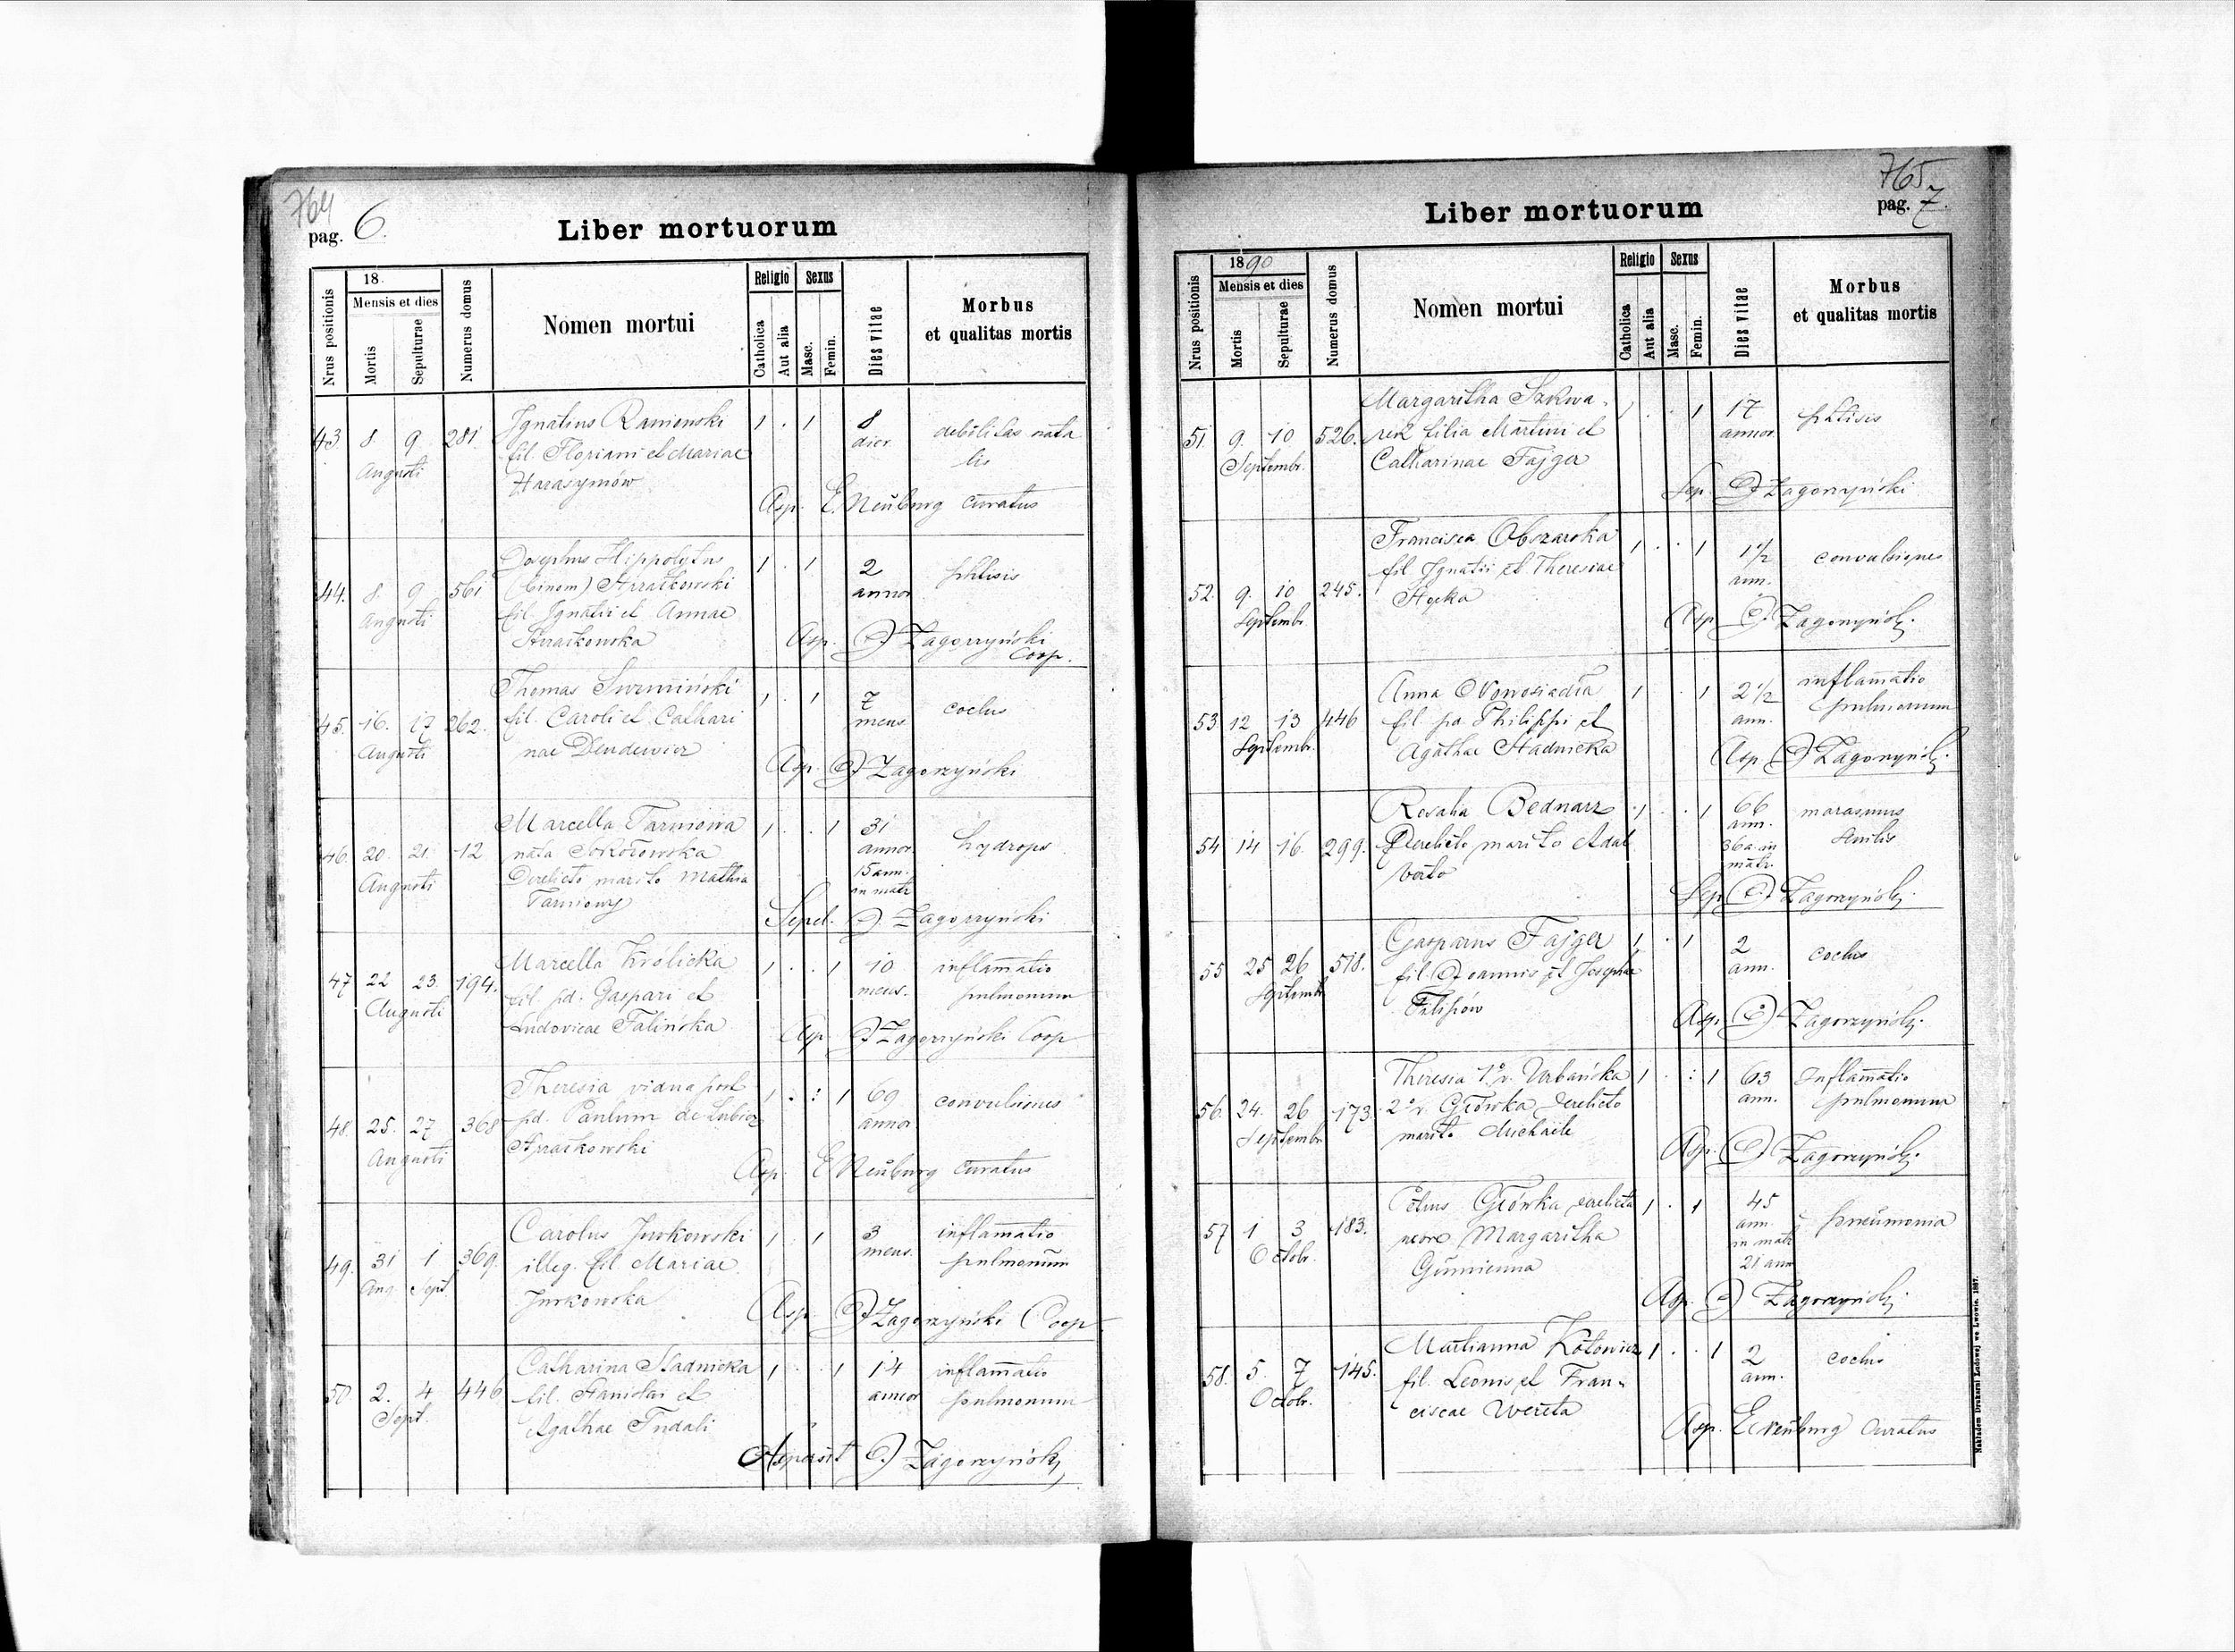 764
pag. 6.
Liber mortuorum
Nrus positionis
18
Mensis et dies
Mortis
Sepulturae
Numerus domus
Nomen mortui
Religio
Catholica
Aut alia
Sexus
Masc.
Femin.
Dies vitae
Morbus
et qualitas mortis
43 8 9 281 Ignatius 1 . 1 8 debilitas nata
Augusti fil. Floriani et Mariae dier lis
Harasymów
Asp. E. Neuburg curatus
44. 8. 9 561 Josephus Hippolytus 1 . 1 2 phtisis
Augusti (binom) annor
fil. Ignatii et Annae
Asp. J Zagorzyński
Coop.
45. 16. 17 262. Thomas 1 . 1 7 coclus
Augusti fil. Caroli et Cathari mens
nae Dendewicz
Asp. J Zagorzyński
46. 20. 21. 12 Marcella Tarniowa 1 . . 1 31 hydrops
Augusti nata Sokołowska annor
Derelicto marito Mathia 15 ann.
Tarniowy in matr
Sepel. J. Zagorzyński
47 22 23 194. Marcella Królicka 1 . . 1 10 inflammatio
Augusti fil. pd. Gaspari et mens. pulmonum
Ludovicae Falińska
Asp J Zagorzyński Coop
48. 25. 27 368 Theresia vidua post 1 . : 1 69 convulsiones
Augusti pd. Paulum de Lubicz annor
Asp. E Neuburg curatus
49. 31 1 369. Carolus Jurkowski 1 . 1 3 inflammatio
Aug Sept. illeg. fil Mariae mens. pulmonum
Jurkowska
Asp. J Zagorzyński Coop
50 2. 4 446 Catharina Stadnicka 1 . . 1 14 inflammatio
Sept. fil. Stanislai et annor pulmonum
Agathae Tndali
Aspersit J. Zagorzyński
765
pag. 7.
Liber mortuorum
Nrus positionis
1890
Mensis et dies
Mortis
Sepulturae
Numerus domus
Nomen mortui
Religio
Catholica
Aut alia
Sexus
Masc.
Femin.
Dies vitae
Morbus
et qualitas mortis
51 9. 10 526. Margaritha Szkwa- 1 . . 1 17 phtisis
Septembr. rek filia Martini et annor
Catharinae Fajger
Sep. J Zagorzyński
52. 9. 10 245. Francisca Obszarska 1 . . 1 1 1/2 convulsiones
Septembr. fil Ignatii et Theresiae ann.
Asp J. Zagorzyński
53 12 13 446 Anna Nowosiadła 1 . . 1 2 1/2 inflammatio
Septembr. fil pd. Philippi et ann. pulmonum
Agathae Stadnicka
Asp J Zagorzyński
54 14 16. 299. Rosalia Bednarz 1 . . 1 66 marasmus
Derelicto marito Adal ann. senilis
berto 36 a. in
matr.
Sep J Zagorzyński
55 25 26 518. Gasparus Fajger 1 . 1 2 coclus
Septembr fil. Joannis et Josephae ann.
Filipów
Asp. J Zagorzyński
56. 24. 26 173. Theresia 1o v. Urbańska 1 . : 1 63 Inflammatio
Septembr 2o v. Główka derelicto ann. pulmonum
marito Michaele
Asp. J Zagorzyński
57 1 3 183. Petrus Główka derelicta 1 . 1 45 pneumonia
Octobr. uxore Margaritha ann.
in matr
21 ann
Asp. J Zagorzyński
58. 5. 7 145. Marianna Kotowicz 1 . . 1 2 coclus
Octobr. fil. Leonis et Fran- ann.
ciscae Wereta
Asp. E Neuburg Curatus
Nakładem Drukarni Ludowej we Lwowie. 1887.